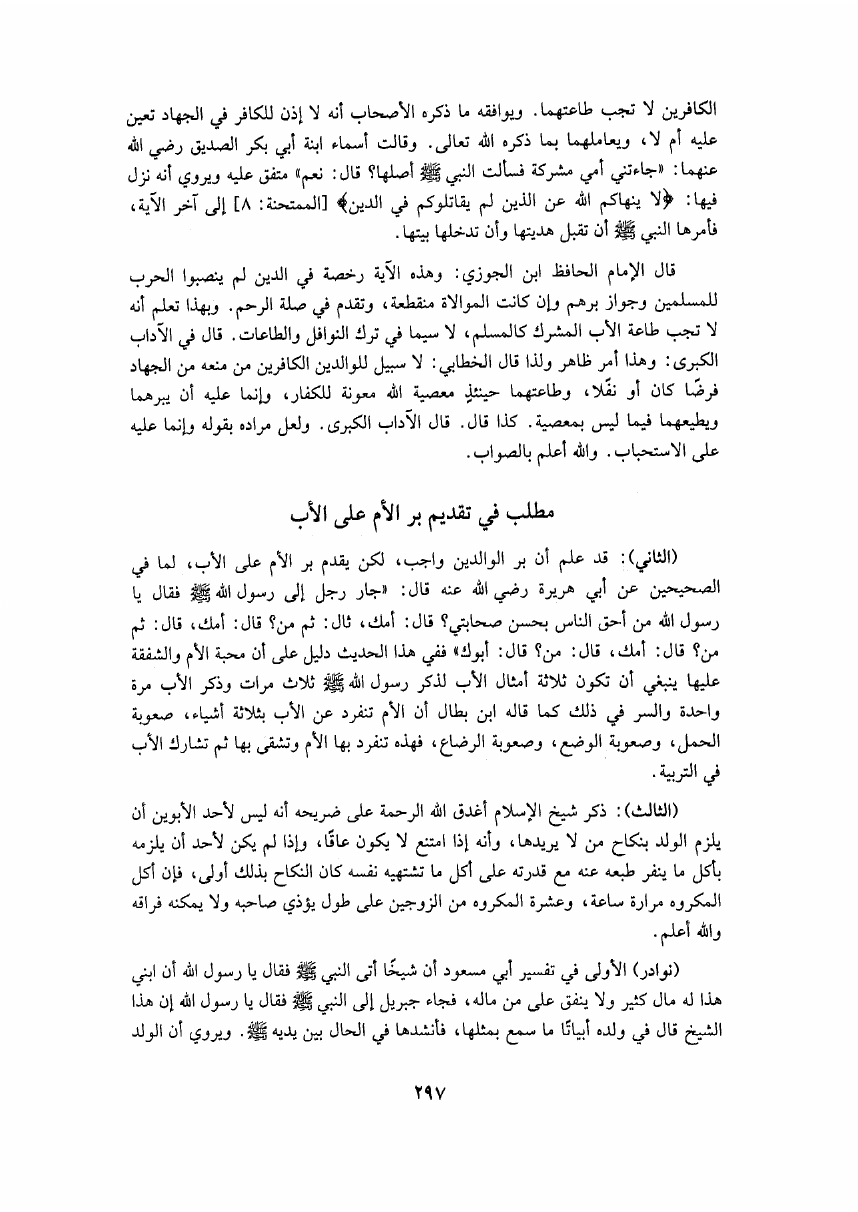 الكافرين لا تجب طاعتهما. ويوافقه ما ذكره الأصحاب أنه لا إذن للكافر في الجهاد تعين
عليه أم لا، ويعاملهما بما ذكره الله تعالى. وقالت أسماء ابنة أبي بكر الصديق رضي الله
عنهما: «جاءتني أمي مشركة فسألت النبي ﷺ أصلها؟ قال: نعم» متفق عليه ويروي أنه نزل
فيها: ﴿لا ينهاكم الله عن الذين لم يقاتلوكم في الدين﴾ [الممتحنة: ٨] إلى آخر الآية،
فأمرها النبي ﷺ أن تقبل هديتها وأن تدخلها بيتها.
قال الإمام الحافظ ابن الجوزي: وهذه الآية رخصة في الدين لم ينصبوا الحرب
للمسلمين وجواز برهم وإن كانت الموالاة منقطعة، وتقدم في صلة الرحم. وبهذا تعلم أنه
لا تجب طاعة الأب المشرك كالمسلم، لا سيما في ترك النوافل والطاعات. قال في الآداب
الكبرى: وهذا أمر ظاهر ولذا قال الخطابي: لا سبيل للوالدين الكافرين من منعه من الجهاد
فرضًا كان أو نفًلا، وطاعتهما حينئذٍ معصية الله معونة للكفار، وإنما عليه أن يبرهما
ويطيعهما فيما ليس بمعصية. كذا قال. قال الآداب الكبرى. ولعل مراده بقوله وإنما عليه
على الاستحباب. والله أعلم بالصواب.
مطلب في تقديم بر الأم على الأب
(الثاني): قد علم أن بر الوالدين واجب، لكن يقدم بر الأم على الأب، لما في
الصحيحين عن أبي هريرة رضي الله عنه قال: «جار رجل إلى رسول الله ﷺ فقال يا
رسول الله من أحق الناس بحسن صحابتي؟ قال: أمك، ثال: ثم من؟ قال: أمك، قال: ثم
من؟ قال: أمك، قال: من؟ قال: أبوك» ففي هذا الحديث دليل على أن محبة الأم والشفقة
عليها ينبغي أن تكون ثلاثة أمثال الأب لذكر رسول الله ﷺ ثلاث مرات وذكر الأب مرة
واحدة والسر في ذلك كما قاله ابن بطال أن الأم تنفرد عن الأب بثلاثة أشياء، صعوبة
الحمل، وصعوبة الوضع، وصعوبة الرضاع، فهذه تنفرد بها الأم وتشقى بها ثم تشارك الأب
في التربية.
(الثالث): ذكر شيخ الإسلام أغدق الله الرحمة على ضريحه أنه ليس لأحد الأبوين أن
يلزم الولد بنكاح من لا يريدها، وأنه إذا امتنع لا يكون عاقًا، وإذا لم يكن لأحد أن يلزمه
بأكل ما ينفر طبعه عنه مع قدرته على أكل ما تشتهيه نفسه كان النكاح بذلك أولى، فإن أكل
المكروه مرارة ساعة، وعشرة المكروه من الزوجين على طول يؤذي صاحبه ولا يمكنه فراقه
والله أعلم.
(نوادر) الأولى في تفسير أبي مسعود أن شيخًا أتى النبي ﷺ فقال يا رسول الله أن ابني
هذا له مال كثير ولا ينفق على من ماله، فجاء جبريل إلى النبي ﷺ فقال يا رسول الله إن هذا
الشيخ قال في ولده أبياتًا ما سمع بمثلها، فأنشدها في الحال بين يديه ﷺ. ويروي أن الولد
٢٩٧